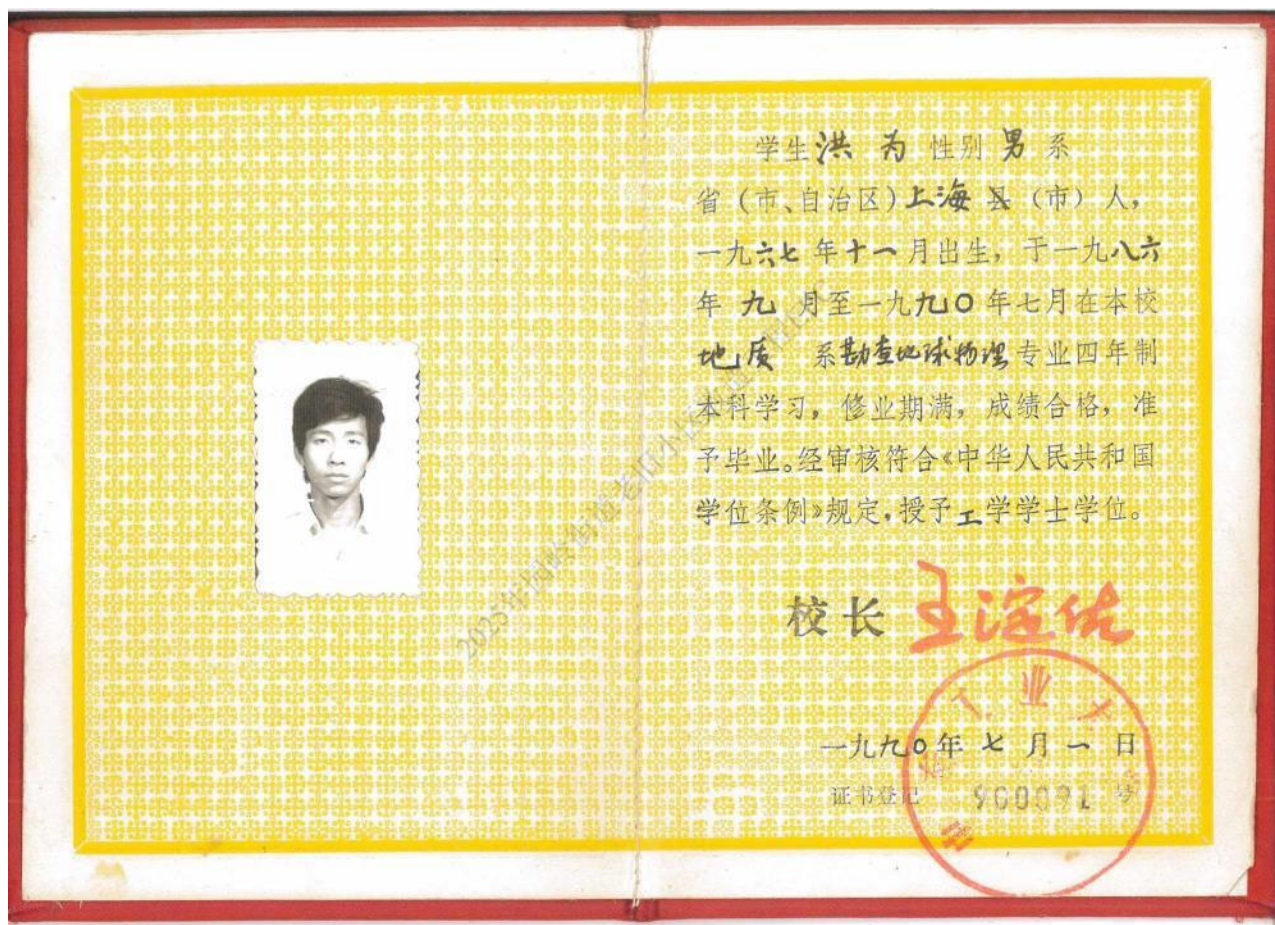 学生 洪为 性别 男 系
省（市、自治区）上海 县（市）人，
一九六七年十一月出生，于一九八六
年 九 月至一九九〇年七月在本校
地质 系勘查地球物理专业四年制
本科学习，修业期满，成绩合格，准
予毕业。经审核符合《中华人民共和国
学位条例》规定，授予工学学士学位。
校长 王淀佐
工业大
一九九〇年 七 月 一 日
证书登记 900091 号